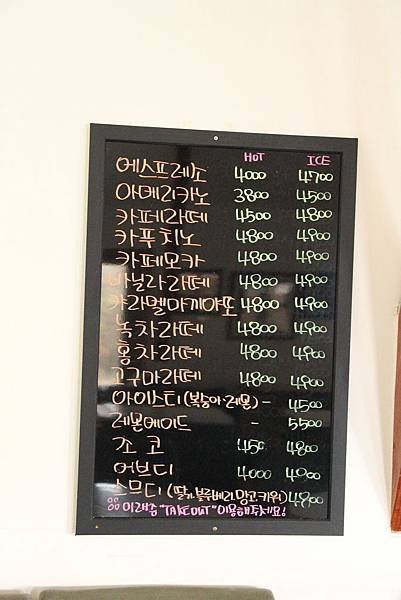 HOT ICE
에스프레소 4000 4700
아메리카노 3800 4500
카페라떼 4500 4800
카푸치노 4800 4900
카페모카 4800 4900
바닐라라떼 4800 4900
캬라멜마끼야또 4800 4900
녹차라떼 4800 4900
홍차라떼 4800 4900
고구마라떼 4800 4900
아이스티(복숭아·레몬) - 4500
레몬에이드 - 5500
코 4800
허브티 4000
스무디 (딸기.블루베리.망고.키위) 4900
"TAKE OUT" 이용해주세요!